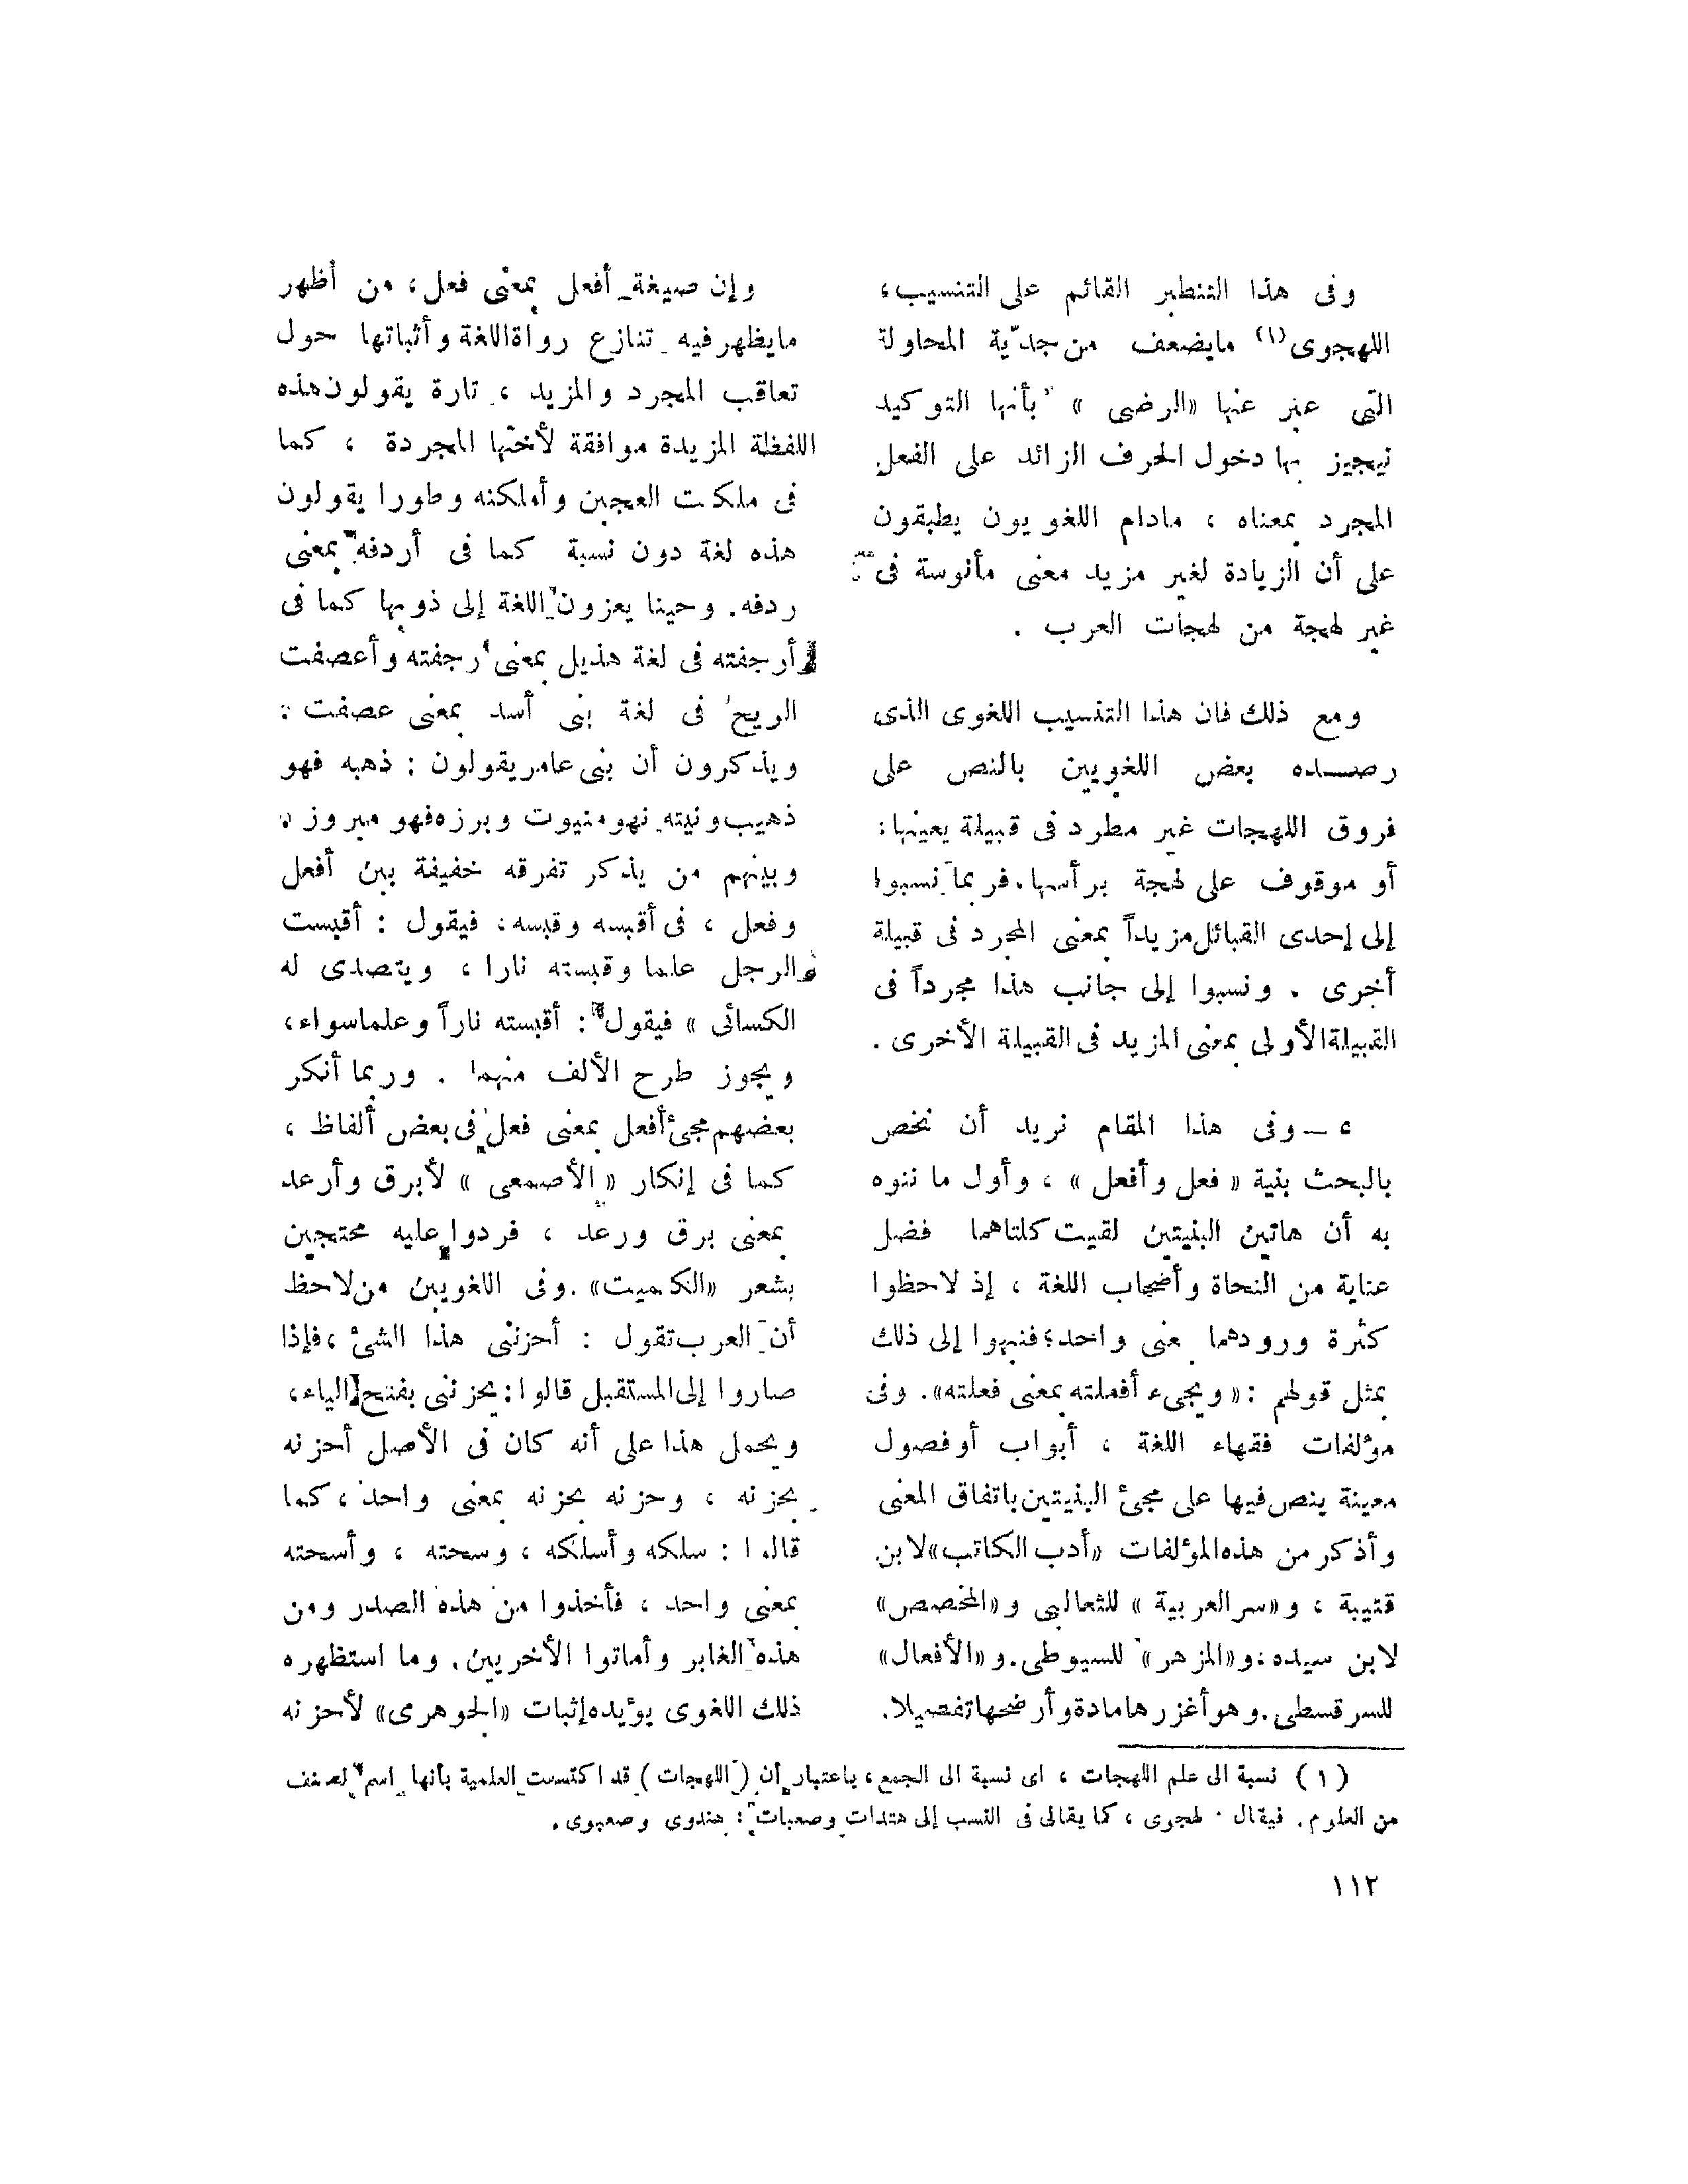 وفى هذا التنظير القائم على التنسيب،
اللهجوى (١) مايضعف من جدّية المحاولة
التى عبر عنها «الرضى » بأنها التوكيد
نيجيز بها دخول الحرف الزائد على الفعل
المجرد بمعناه ، مادام اللغويون يطبقون
على أن الزيادة لغير مزيد معنى مأنوسة فى
غير لهجة من لهجات العرب .
ومع ذلك فان هذا التنسيب اللغوى الذى
رصــده بعض اللغويين بالنص على
فروق اللهجات غير مطرد فى قبيلة بعينها :
أو موقوف على لهجة برأسها . فربما نسبوا
إلى إحدى القبائل مزيداً بمعنى المجرد فى قبيلة
أخرى . ونسبوا إلى جانب هذا مجرداً فى
القبيلة الأولى بمعنى المزيد فى القبيلة الأخرى .
٤ – وفى هذا المقام نريد أن نخص
بالبحث بنية « فعل وأفعل » ، وأول ما ننوه
به أن هاتين البنيتين لقيت كلتاهما فضل
عناية من النحاة وأصحاب اللغة ، إذ لاحظوا
كثرة ورودهما بمعنى واحد ؛ فنبهوا إلى ذلك
بمثل قولهم : « ويجىء أفعلته بمعنى فعلته» . وفى
مؤلفات فقهاء اللغة ، أبواب أو فصول
معينة ينص فيها على مجئ البنيتين باتفاق المعنى
وأذكر من هذه المؤلفات «أدب الكاتب» لابن
قتيبة ، و «سر العربية » للثعالبى و «المخصص»
لابن سيده ، و «المزهر» للسيوطى . و «الأفعال»
للسرقسطى . وهو أغزرها مادة وأوضحها تفصيلا .
وإن صيغة أفعل بمعنى فعل ، من أظهر
مايظهر فيه تنازع رواة اللغة وأثباتها حول
تعاقب المجرد والمزيد ، تارة يقولون هذه
اللفظة المزيدة موافقة لأختها المجردة ، كما
فى ملكت العجين وأملكنه وطورا يقولون
هذه لغة دون نسبة كما فى أردفه بمعنى
ردفه . وحينا يعزون اللغة إلى ذويها كما فى
أرجفته فى لغة هذيل بمعنى رجفته وأعصفت
الريح فى لغة بنى أسد بمعنى عصفت :
ويذكرون أن بنى عامر يقولون : ذهبه فهو
ذهيب ونيته فهو منيوت وبرزه فهو مبروز ،
وبينهم من يذكر تفرقه خفيفة بين أفعل
وفعل ، فى أقبسه وقبسه ، فيقول : أقبست
الرجل علما وقبسته نارا ، ويتصدى له
الكسائى » فيقول : أقبسته ناراً وعلما سواء ،
ويجوز طرح الألف منهما . وربما أنكر
بعضهم مجئ أفعل بمعنى فعل فى بعض ألفاظ ،
كما فى إنكار « الأصمعى » لأبرق وأرعد
بمعنى برق ورعد ، فردوا عليه محتجين
بشعر «الكميت» . وفى اللغويين من لاحظ
أن العرب تقول : أحزننى هذا الشئ ، فإذا
صاروا إلى المستقبل قالوا : يحزننى بفتح الياء ،
ويحمل هذا على أنه كان فى الأصل أحزنه
يحزنه ، وحزنه يحزنه بمعنى واحد ، كما
قالوا : سلكه وأسلكه ، وسحته ، وأسحته
بمعنى واحد ، فأخذوا من هذه الصدر ومن
هذه الغابر وأماتوا الأخريين . وما استظهره
ذلك اللغوى يؤيده إثبات «الجوهرى» لأحزنه
( ١ ) نسبة الى علم اللهجات ، اى نسبة الى الجمع ، باعتبار أن ( اللهجات ) قد اكتسبت العلمية بأنها اسم لصنف
من العلوم . فيقال . لهجوى ، كما يقال فى النسب إلى هندات وصعبات : هندوى وصعبوى .
١١٢